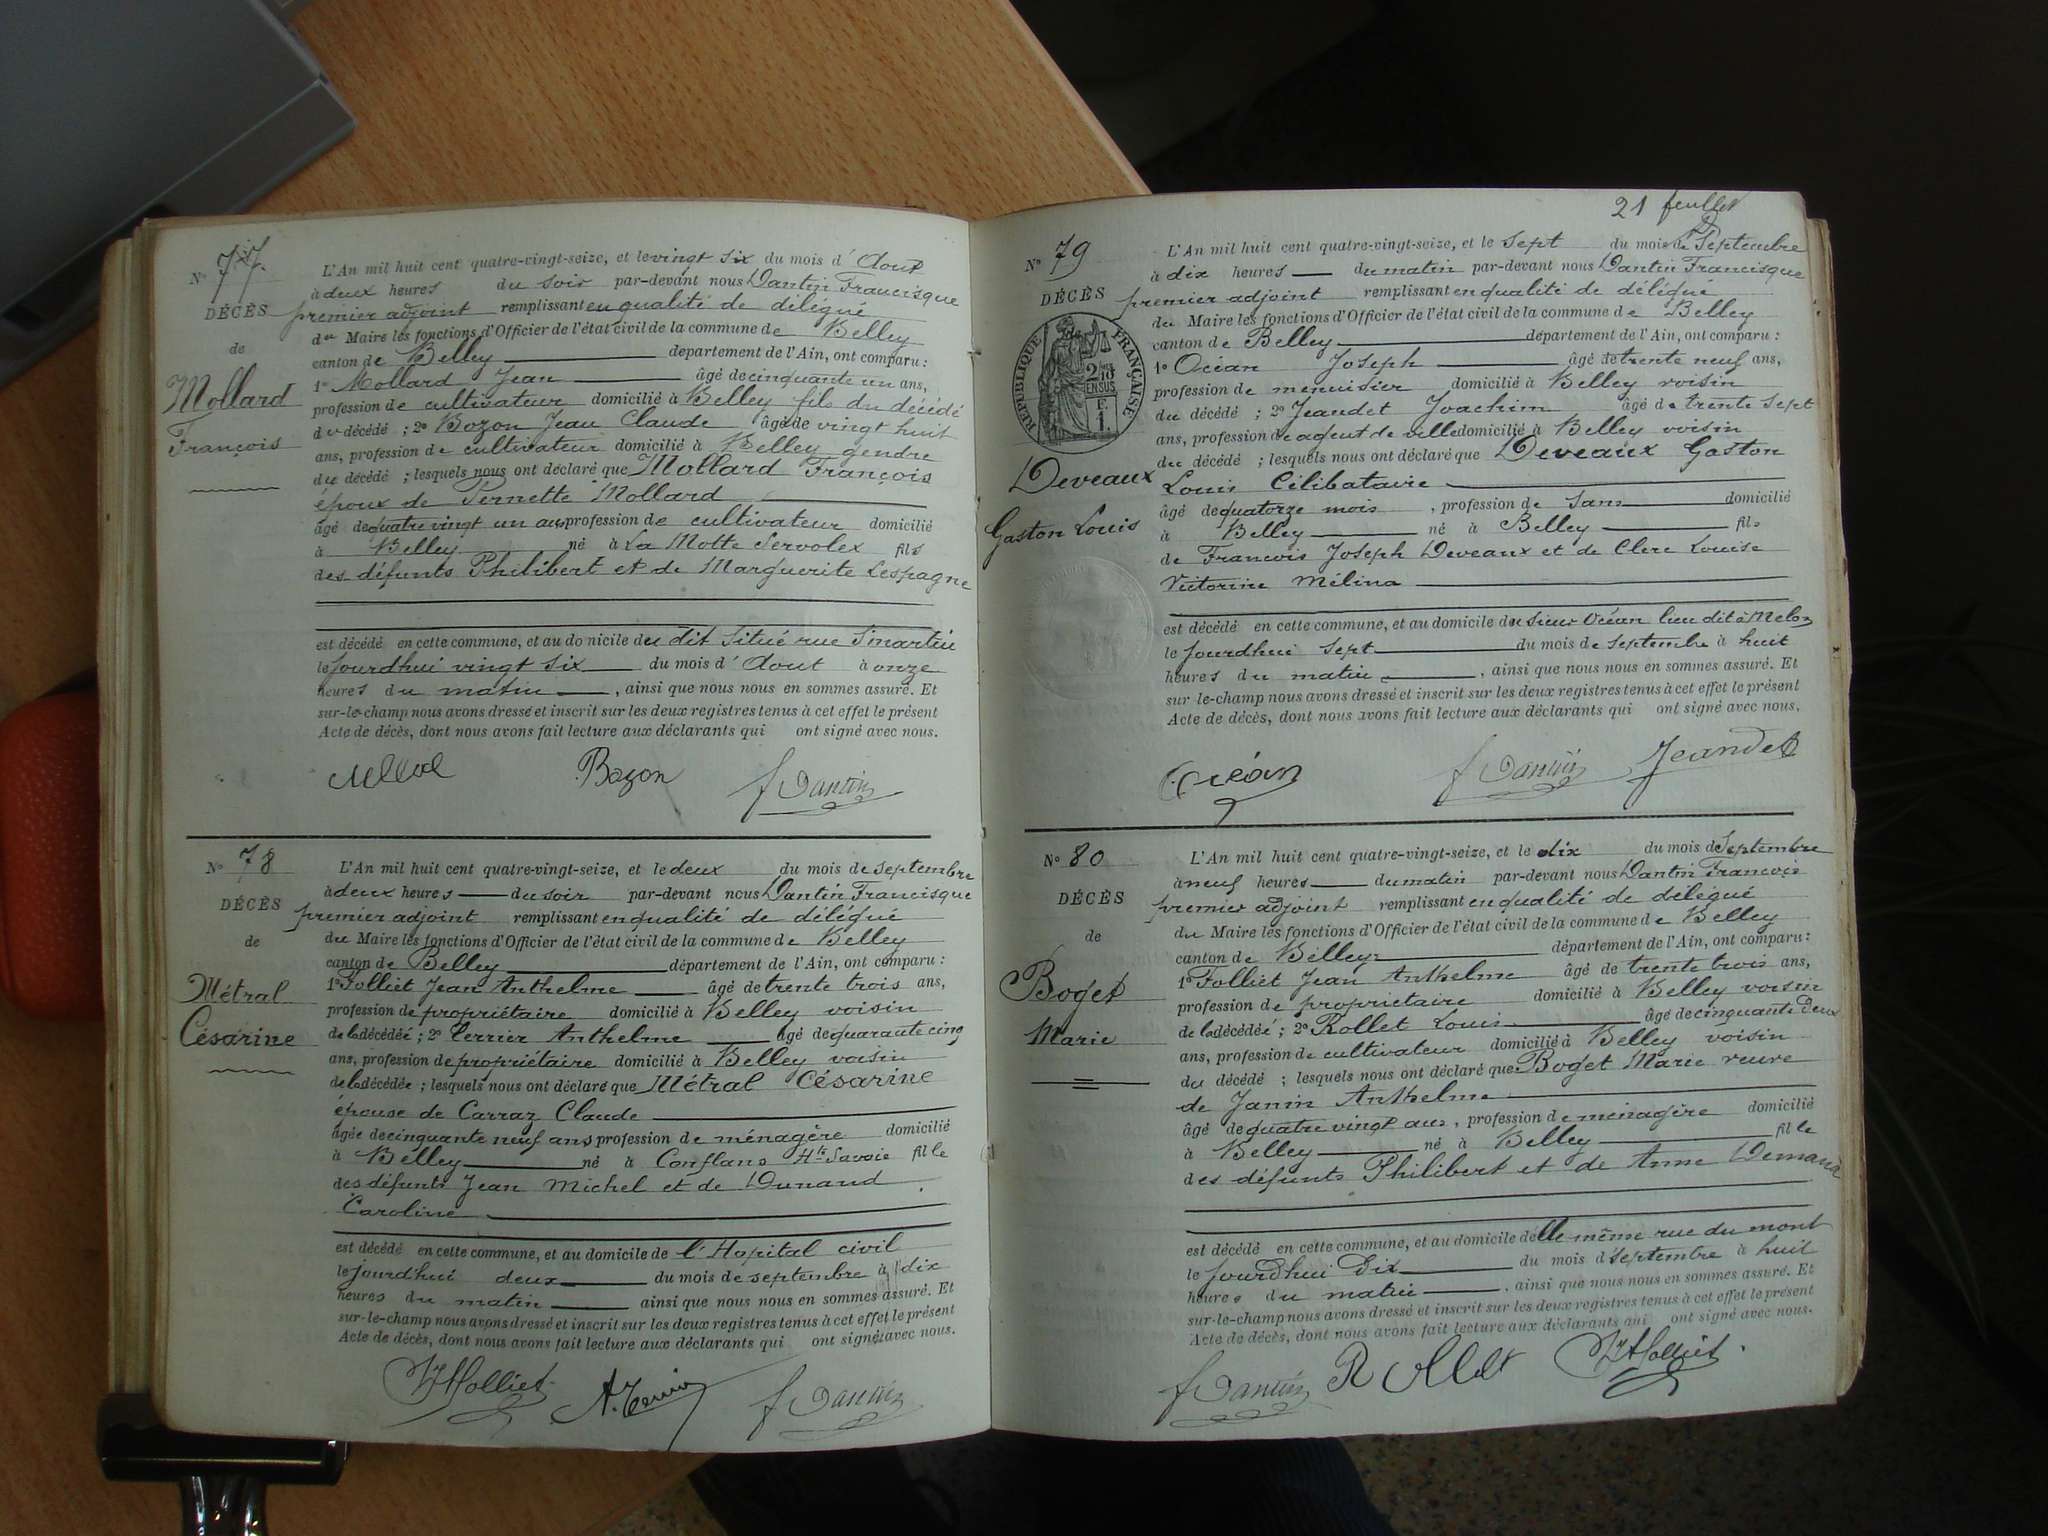 N° 77.
DÉCÈS
de
Mollard
François
L'An mil huit cent quatre-vingt-seize, et le vingt six du mois d'Aout
à deux heures du soir par-devant nous Dantin Francisque
premier adjoint remplissant en qualité de délégué
du Maire les fonctions d'Officier de l'état civil de la commune de Belley
canton de Belley département de l'Ain, ont comparu :
1° Mollard Jean âgé de cinquante un ans,
profession de cultivateur domicilié à Belley fils du décédé
du décédé ; 2° Bozon Jean Claude âgé de vingt huit
ans, profession de cultivateur domicilié à Belley gendre
du décédé ; lesquels nous ont déclaré que Mollard François
époux de Pernette Mollard
âgé de quatre vingt un ans profession de cultivateur domicilié
à Belley né à La Motte Servolex fils
des défunts Philibert et de Marguerite Lespagne
est décédé en cette commune, et au domicile du dit situé rue Smartin
le jourdhui vingt six du mois d'Aout à onze
heures du matin, ainsi que nous nous en sommes assuré. Et
sur-le-champ nous avons dressé et inscrit sur les deux registres tenus à cet effet le présent
Acte de décès, dont nous avons fait lecture aux déclarants qui ont signé avec nous.
Bozon f Dantin
N° 78
DÉCÈS
de
Métral
Césarine
L'An mil huit cent quatre-vingt-seize, et le deux du mois de septembre
à deux heures du soir par-devant nous Dantin Francisque
premier adjoint remplissant en qualité de délégué
du Maire les fonctions d'Officier de l'état civil de la commune de Belley
canton de Belley département de l'Ain, ont comparu :
1° Folliet Jean Anthelme âgé de trente trois ans,
profession de propriétaire domicilié à Belley voisin
de la décédéé ; 2° Terrier Anthelme âgé de quarante cinq
ans, profession de propriétaire domicilié à Belley voisin
de la décédée ; lesquels nous ont déclaré que Métral Césarine
épouse de Carraz Claude
âgée de cinquante neuf ans profession de ménagère domicilié
à Belley né à Conflans Hte Savoie fille
des défunts Jean Michel et de Dunand
Caroline
est décédé en cette commune, et au domicile de l'Hopital civil
le jourdhui deux du mois de septembre à dix
heures du matin ainsi que nous nous en sommes assuré. Et
sur-le-champ nous avons dressé et inscrit sur les deux registres tenus à cet effet le présent
Acte de décès, dont nous avons fait lecture aux déclarants qui ont signé avec nous.
f Dantin
21 feuillet
N° 79
DÉCÈS
de
RÉPUBLIQUE FRANÇAISE
Deveaux
Gaston Louis
L'An mil huit cent quatre-vingt-seize, et le sept du mois de Septembre
à dix heures du matin par-devant nous Dantin Francisque
premier adjoint remplissant en qualité de délégué
du Maire les fonctions d'Officier de l'état civil de la commune de Belley
canton de Belley département de l'Ain, ont comparu :
1° Océan Joseph âgé de trente neuf ans,
profession de menuisier domicilié à Belley voisin
du décédé ; 2° Jeandet Joachim âgé de trente sept
ans, profession de agent de ville domicilié à Belley voisin
du décédé ; lesquels nous ont déclaré que Deveaux Gaston
Louis Célibataire
âgé de quatorze mois, profession de sans domicilié
à Belley né à Belley fils
de Francois Joseph Deveaux et de Clerc Louise
Victorine Mélina
est décédé en cette commune, et au domicile du sieur Océan lieu dit à Meloz
le jourdhui sept du mois de septembre à huit
heures du matin, ainsi que nous nous en sommes assuré. Et
sur-le-champ nous avons dressé et inscrit sur les deux registres tenus à cet effet le présent
Acte de décès, dont nous avons fait lecture aux déclarants qui ont signé avec nous.
Océan f Dantin Jeandet
N° 80
DÉCÈS
de
Boget
Marie
L'An mil huit cent quatre-vingt-seize, et le dix du mois d Septembre
à neuf heures du matin par-devant nous Dantin Francois
premier adjoint remplissant en qualité de délégué
du Maire les fonctions d'Officier de l'état civil de la commune de Belley
canton de Belley département de l'Ain, ont comparu :
1° Folliet Jean Anthelme âgé de trente trois ans,
profession de propriétaire domicilié à Belley voisin
de la décédéé ; 2° Rollet Louis âgé de cinquante deux
ans, profession de cultivateur domicilié à Belley voisin
du décédé ; lesquels nous ont déclaré que Boget Marie veuve
de Janin Anthelme
âgé de quatre vingt ans, profession de ménagère domicilié
à Belley né à Belley fille
des défunts Philibert et de Anne
est décédé en cette commune, et au domicile delle même rue du mont
le jourdhui dix du mois d septembre à huit
heures du matin, ainsi que nous nous en sommes assuré. Et
sur-le-champ nous avons dressé et inscrit sur les deux registres tenus à cet effet le présent
Acte de décès, dont nous avons fait lecture aux déclarants qui ont signé avec nous.
f Dantin Rollet